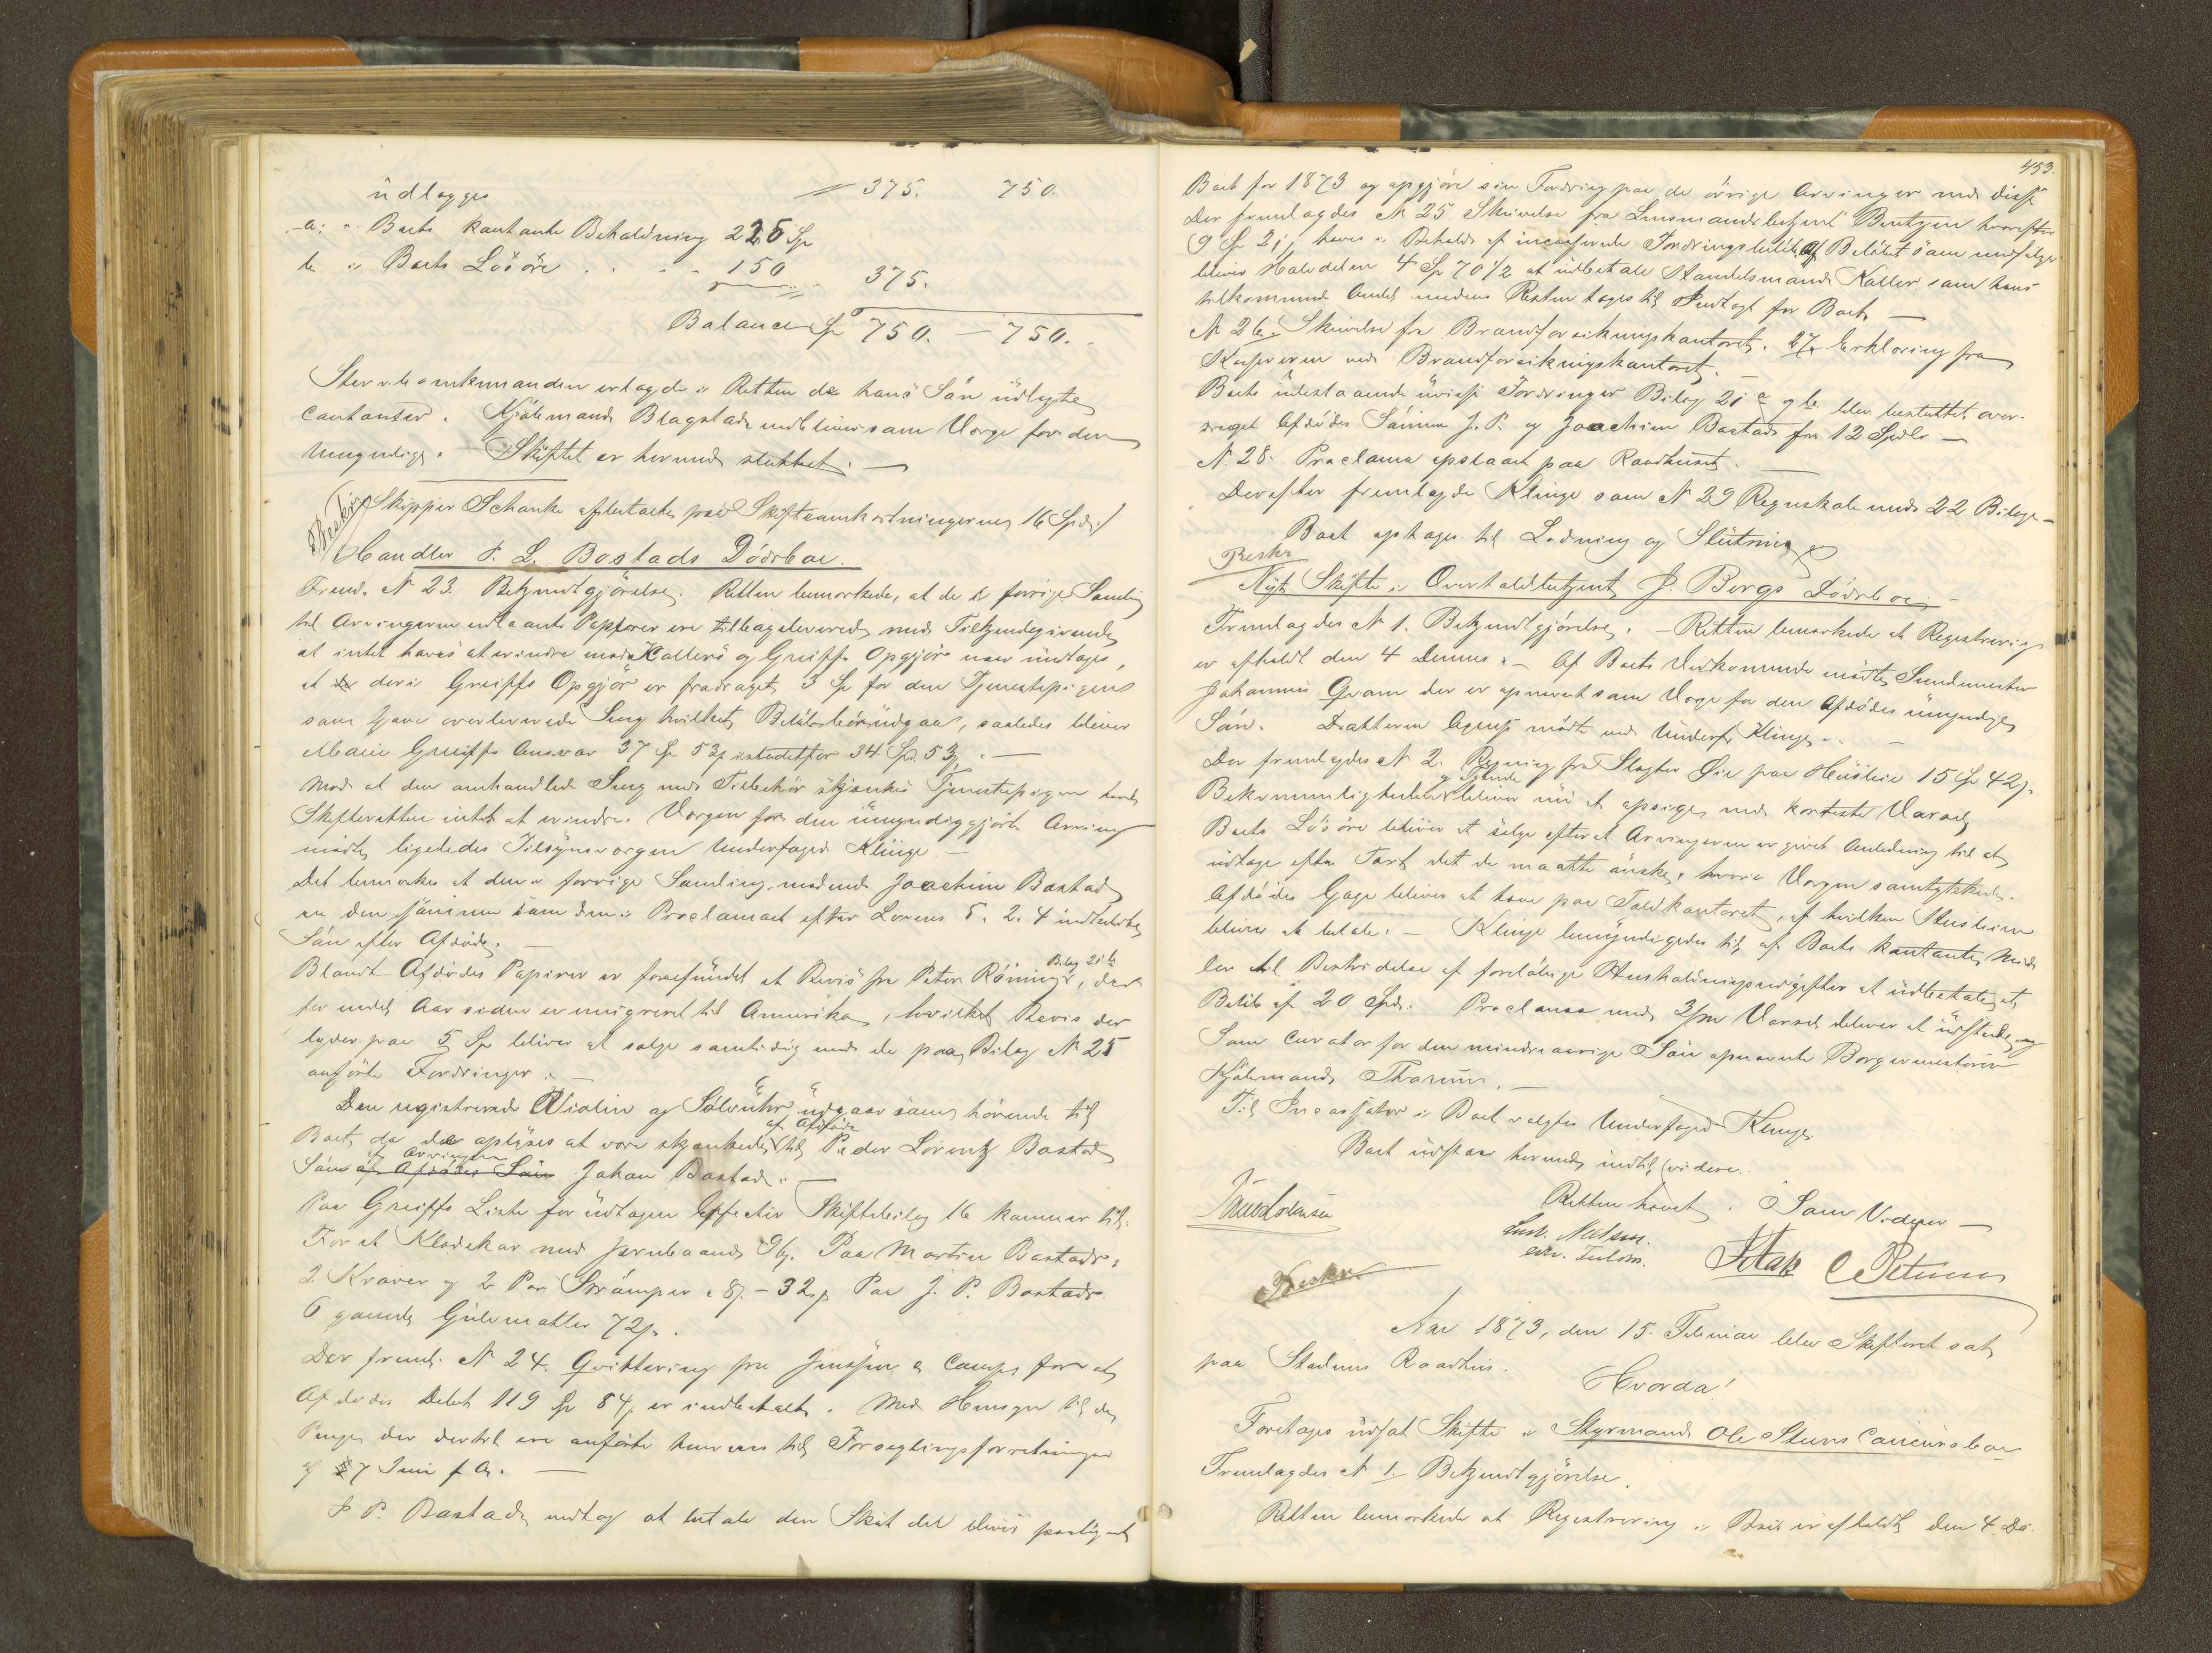 üdlægges 375. 750.
a: i Boets kontante Behaldning 225 Sp
b i Boets Lösöre . . . . 150 375.
Balance Sp 750. – 750.
erlagde i Retten de hans Sön üdlagte
Contanter. Kjöbmand Blagstad som Værge for den
Umyndige. Skiftet er hermed sluttet. —
Skipper Schanke paa 16 Spd.)
Beskr.
Handler P. L. Bostads Dödsboe.
Freml. N 23. Bekjendtgjörelse. Retten bemærkede, at de i forrige Samling
til Arvingerne Papirer ere tilbageleverede med Tilkjendegivende
at intet haves at erindre mod Kallers og Greiffs Opgjör uden undtages,
at deri Greiffs Opgjör er fradraget 3 Sp for den Tjenestepigen
som Gave overleverede Seng hvilket Belöb bör üdgaa, saaledes bliver
Marie Greiffs Ansvar 37 Sp 53 istedetfor 34 Sp. 53. —
Mod at den omhandlede Seng med Tilbehör skjænkes Tjenestepigen havde
Skifteretten intet at erindre. Værgen for den ümyndiggjorte Arving
mödte, ligeledes Tilsynsværgen Underfoged Klinge —
Det bemærkes at den i forrige Samling mödende Joachim Bostad
er den samme som den i Proclamaet efter Lovens 5. 2. 4 indkaldte
Sön efter Afdöde. —
Blandt Afdödes Papirer er forefündet et Bevis fra Peter Rönning, Bilag 21 b der
for endel Aar siden er emigreret til Amerika, hvilket Bevis der
lyder paa 5 Sp bliver at sælge samtidig med de paa Bilag N 25
anförte Fordringer. —
Den registrerede Violin og Sölvühr üdgaar som hörende til
Boet, da de oplyses at være skjænkede af Afdöde til Peder Lorentz Bostad
Sön af Arvingen af Afdödes Sön Johan Bostad. —
Paa Greiffs Liste for üdtagen Effecter Skiftebilag 16 kommer til:
For et Klædekar med Jernbaand 96. Paa Martin Bostads:
2 Kraver og 2 Par Strömper a 8 – 32. Paa J. P. Bostads
6 gamle Gülvmatter 72.
Der freml. N 24. Qvittering fra Jenssen & Comp. for at
Afdödes Debet 119 Sp 84 er indbetalt. Med Hensyn til de
Penge der dertil ere anförte henvises til Forseglingsforretningen
af 7 Juni f. A. —
J. P. Bostad vedtog at betale den Skat der bliver paalignet
453.
Boet for 1873 og opgjöre sin Fordring paa de övrige Arvinger med disse
Der fremlagdes N 25 Skrivelse fra Lensmandsbetjent Bentzen hvorefter
9 Sp 21 haves i Behold af incasserede Fordringsbelöb. Af Belöbet
bliver Halvdelen 4 Sp 70 1/2 at üdbetale Handelsmand Kaller som hans
tilkommende Andel medens Resten tages til Indtægt for Boet —
N 26. Skrivelse fra Brandforsikringskontoret. 27. Erklæring fra
Kassereren ved Brandforsikringskontoret. —
Boets üdestaaende üvisse Fordringer Bilag 21 a og b blev besluttet over-
draget Afdödes Sönner J. P. og Joachim Bostad for 12 Spdlr. —
N. 28. Proclama opslaaet paa Raadhuset. —
Derefter fremlagde Klinge som N 29 Regnskab med 22 Bilage —
Boet optages til Lodning og Slutning
Beskr
Nyt Skifte i Overtoldbetjent J. Borgs Dödsboe. —
Fremlagdes N 1. Bekjendtgjörelse. – Retten bemærkede at Registrering
er afholdt den 4 Dennes. – Af Boets Vedkommende mödte Sündmester
Johannes Gram der er opnævnt som Værge for den Afdödes ümyndige
Sön. Datteren Agnes mödte med Underf. Klinge. —
Der fremlagdes N 2. Regning fra Slagter Öie paa Hüsleie 15 Sp 42.
Bekvemmeligheden og Tjende bliver nü at opsige med korteste Varsel,
Boets Lösöre bliver at sælge efterat Arvingerne er givet Anledning til at
üdtage efter Taxt det de maatte önske, hvori Værgen samtykkede.
Afdödes Gage bliver at hæve paa Toldkontoret, af hvilken Husleien
bliver at betale. — Klinge bemyndigedes til af Boets kontante Mid-
ler til Bestridelse af forelöbige Husholdningsudgifter at üdbetale et
Belöb af 20 Spd. Proclama med 3/m Varsel bliver at üdstede, og
Som Curator for den mindreaarige Sön opnævnte Borgermesteren
Kjöbmand Tharum. —
Til Incassator i Boet valgtes Underfoged Klinge.
Boet üdstaar hermed indtil videre.
Retten hævet. Som Vidner —
Beskr.
Aar 1873, den 15. Februar blev Skifteret sat
paa Stadens Raadhus.
Hvorda!
Foretages üdsat Skifte i Styrmand Ole Steens Concursboe
Fremlagdes N 1. Bekjendtgjörelse.
Retten bemærkede at Registrering i Boet er afholdt den 4. Ds.